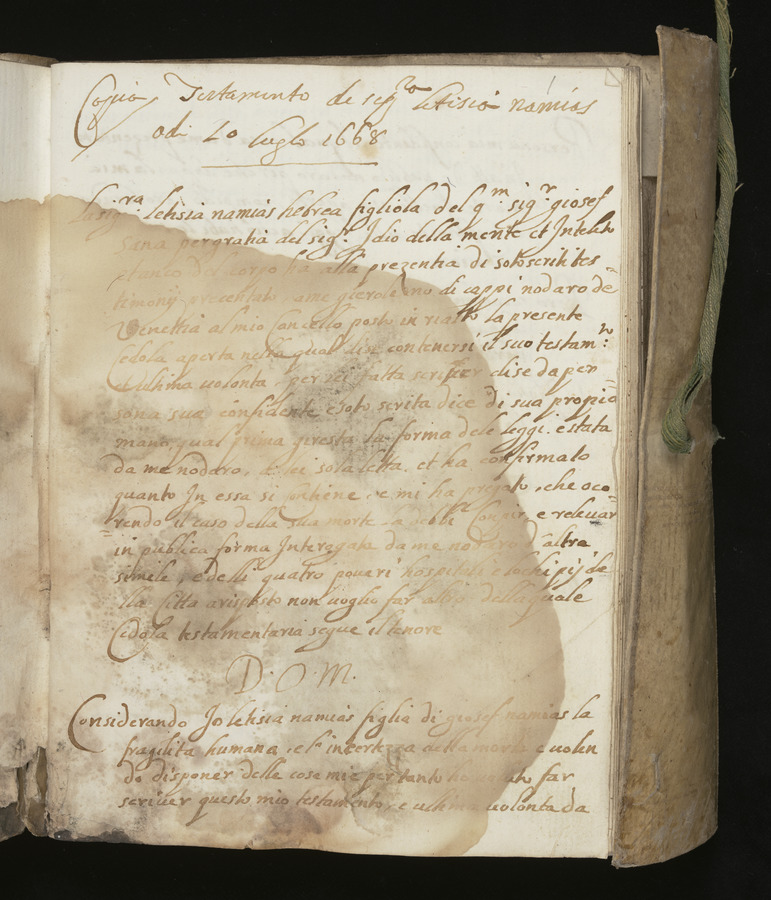 Copia Testamento de sig.ra letisia namias
adi 20 luglo 1668
la sig.ra letisia namias hebrea figliola del q.m sig.r giosef
sana per gratia del sig.r Idio della mente et Inteleto
quanto del corpo ha alla prezentia di sotoscriti tes
timonij presentato a me gierolemo di cappi nodaro de
Venettia al mio Cancello posto in rialto la presente
Cedola aperta nella qual dise contenersi il suo testam.to
et ultima volonta, per lei fatta scriver dise da per
sona sua confidente e soto scrita dice di sua propia
mano qual prima giresta la forma dele leggi. e stata
da me nodaro, a lei sola letta, et ha confirmato
quanto In essa si contiene, e mi ha pregato, che oco
rendo il caso della sua morte, la debbi e relevar
in publica forma Interogata da me nodaro d'altra
simile, e delli quatro poveri hospitali e lochi pij de
lla Citta arisposto non voglio far altro della quale
Cedola testamentaria segue il tenore
D. O. M.
Considerando Io letisia namias figlia di giosef namias la
fragilita humana, e l'incertezza della morte e volen
do disponer delle cose mie per tanto ho voluto far
scriver questo mio testamento, e ultima volonta da